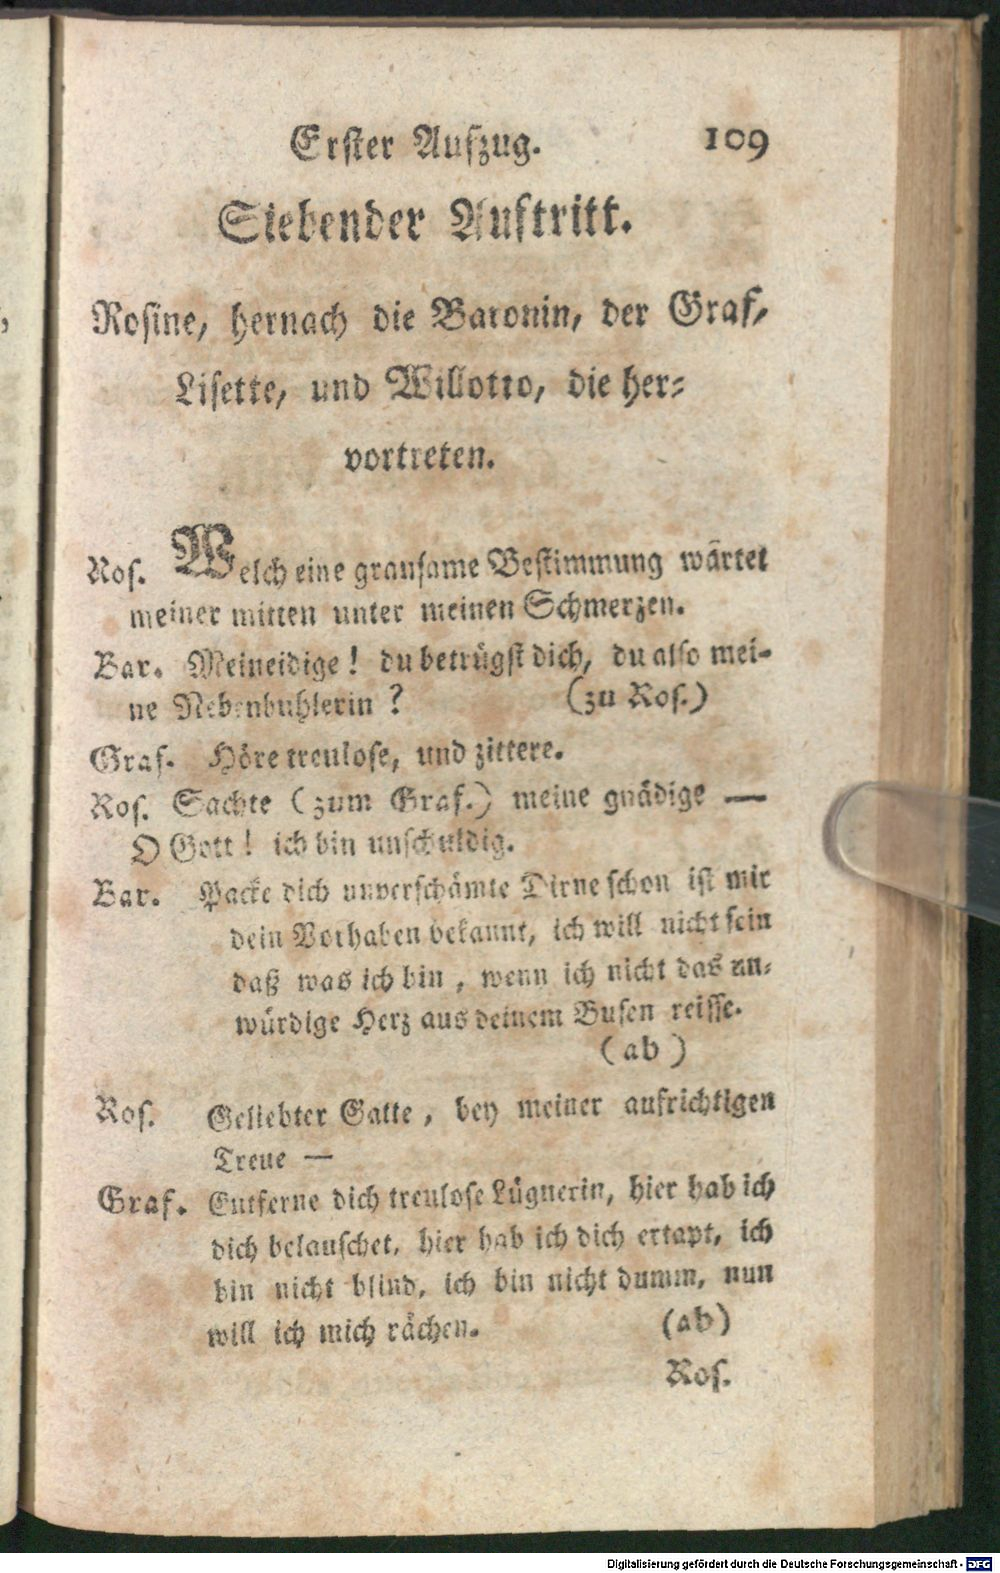 Erster Aufzug. 109
Siebender Auftritt.
Rosine, hernach die Baronin, der Graf,
Lisette, und Willotto, die her-
vortreten.
Ros. Welch eine grausame Bestimmung wartet
meiner mitten unter meinen Schmerzen.
Bar. Meineidige! du betrügst dich, du also mei-
ne Nebenbuhlerin? (zu Ros.)
Graf. Höre treulose, und zittere.
Ros. Sachte (zum Graf.) meine gnädige —
O Gott! ich bin unschuldig.
Bar. Packe dich unverschämte Dirne schon ist mir
dein Vorhaben bekannt, ich will nicht sein
daß was ich bin, wenn ich nicht das un-
würdige Herz aus deinem Busen reisse.
(ab)
Ros. Geliebter Gatte, bey meiner aufrichtigen
Treue —
Graf. Entferne dich treulose Lügnerin, hier hab ich
dich belauschet, hier hab ich dich ertapt, ich
bin nicht blind, ich bin nicht dumm, nun
will ich mich rächen. (ab)
Ros.
Digitalisierung gefördert durch die Deutsche Forschungsgemeinschaft - DFG